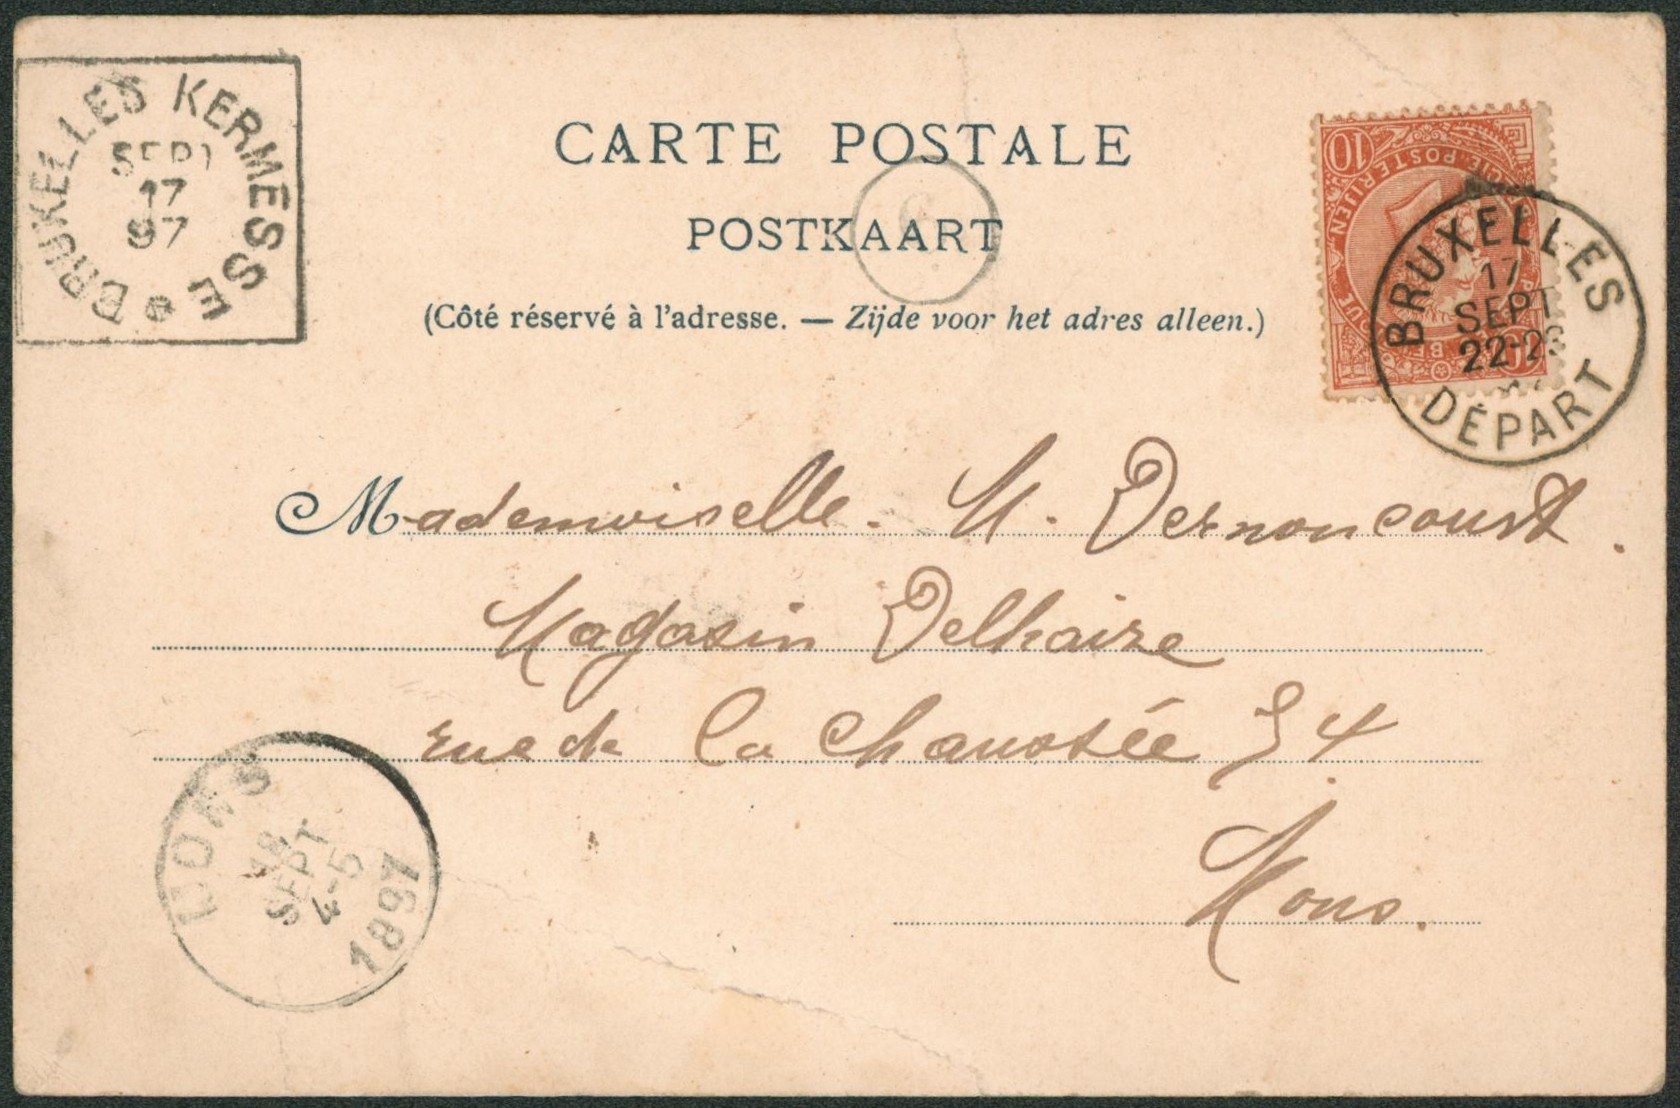 BRUXELLES KERMESSE
SEPT
17
97
CARTE POSTALE
POSTKAART
(Côté réservé à l'adresse. — Zijde voor het adres alleen.)
10
POSTERIJEN
BRUXELLES
17
SEPT
DÉPART
Mademoiselle. M. Dernoncourt.
Magasin Delhaize
rue de la Chaussée 54
Mons.
MONS
18
SEPT
4-5
1897